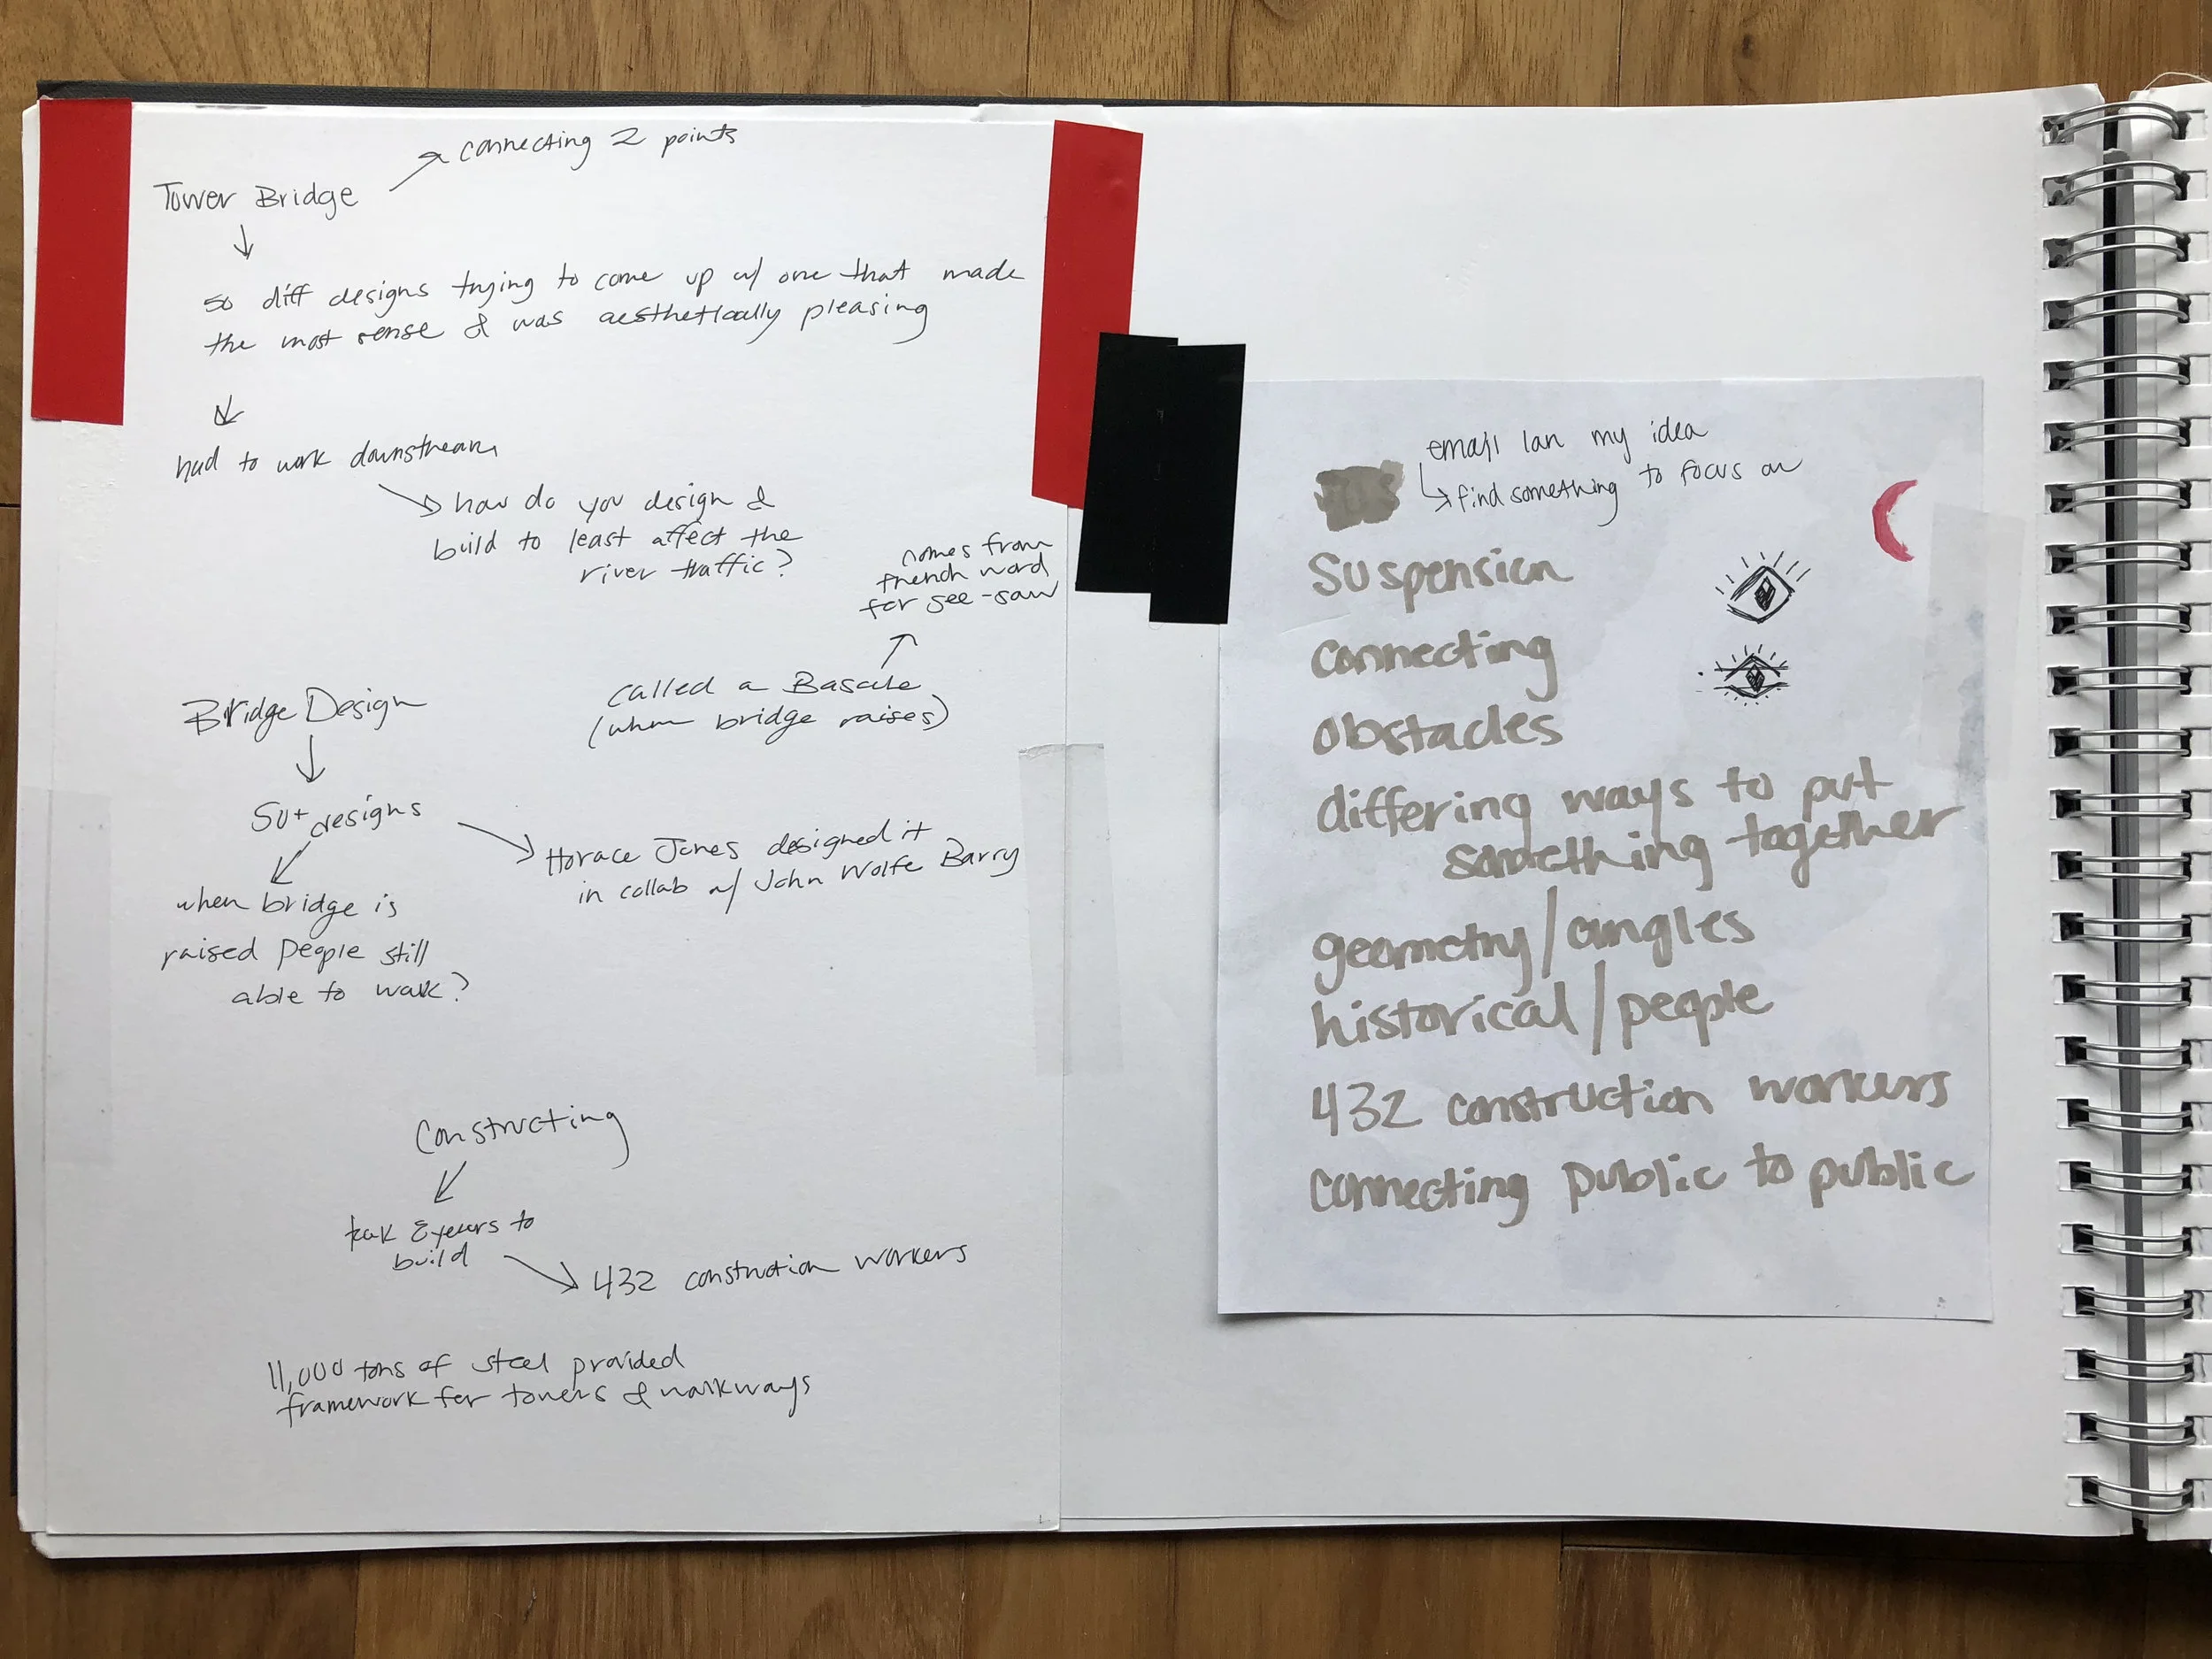 connecting 2 points
Tower Bridge
50 diff designs trying to come up w/ one that made
the most sense & was aesthetically pleasing
had to work downstream
how do you design &
build to least affect the
river traffic?
comes from
french word
for see-saw
called a Bascule
(when bridge raises)
Bridge Design
50+ designs
Horace Jones designed it
in collab w/ John Wolfe Barry
when bridge is
raised people still
able to walk?
Constructing
took 8 years to
build
432 construction workers
11,000 tons of steel provided
framework for towers & walkways
email Ian my idea
find something to focus on
Suspension
connecting
obstacles
differing ways to put
something together
geometry/angles
historical/people
432 construction workers
connecting public to public